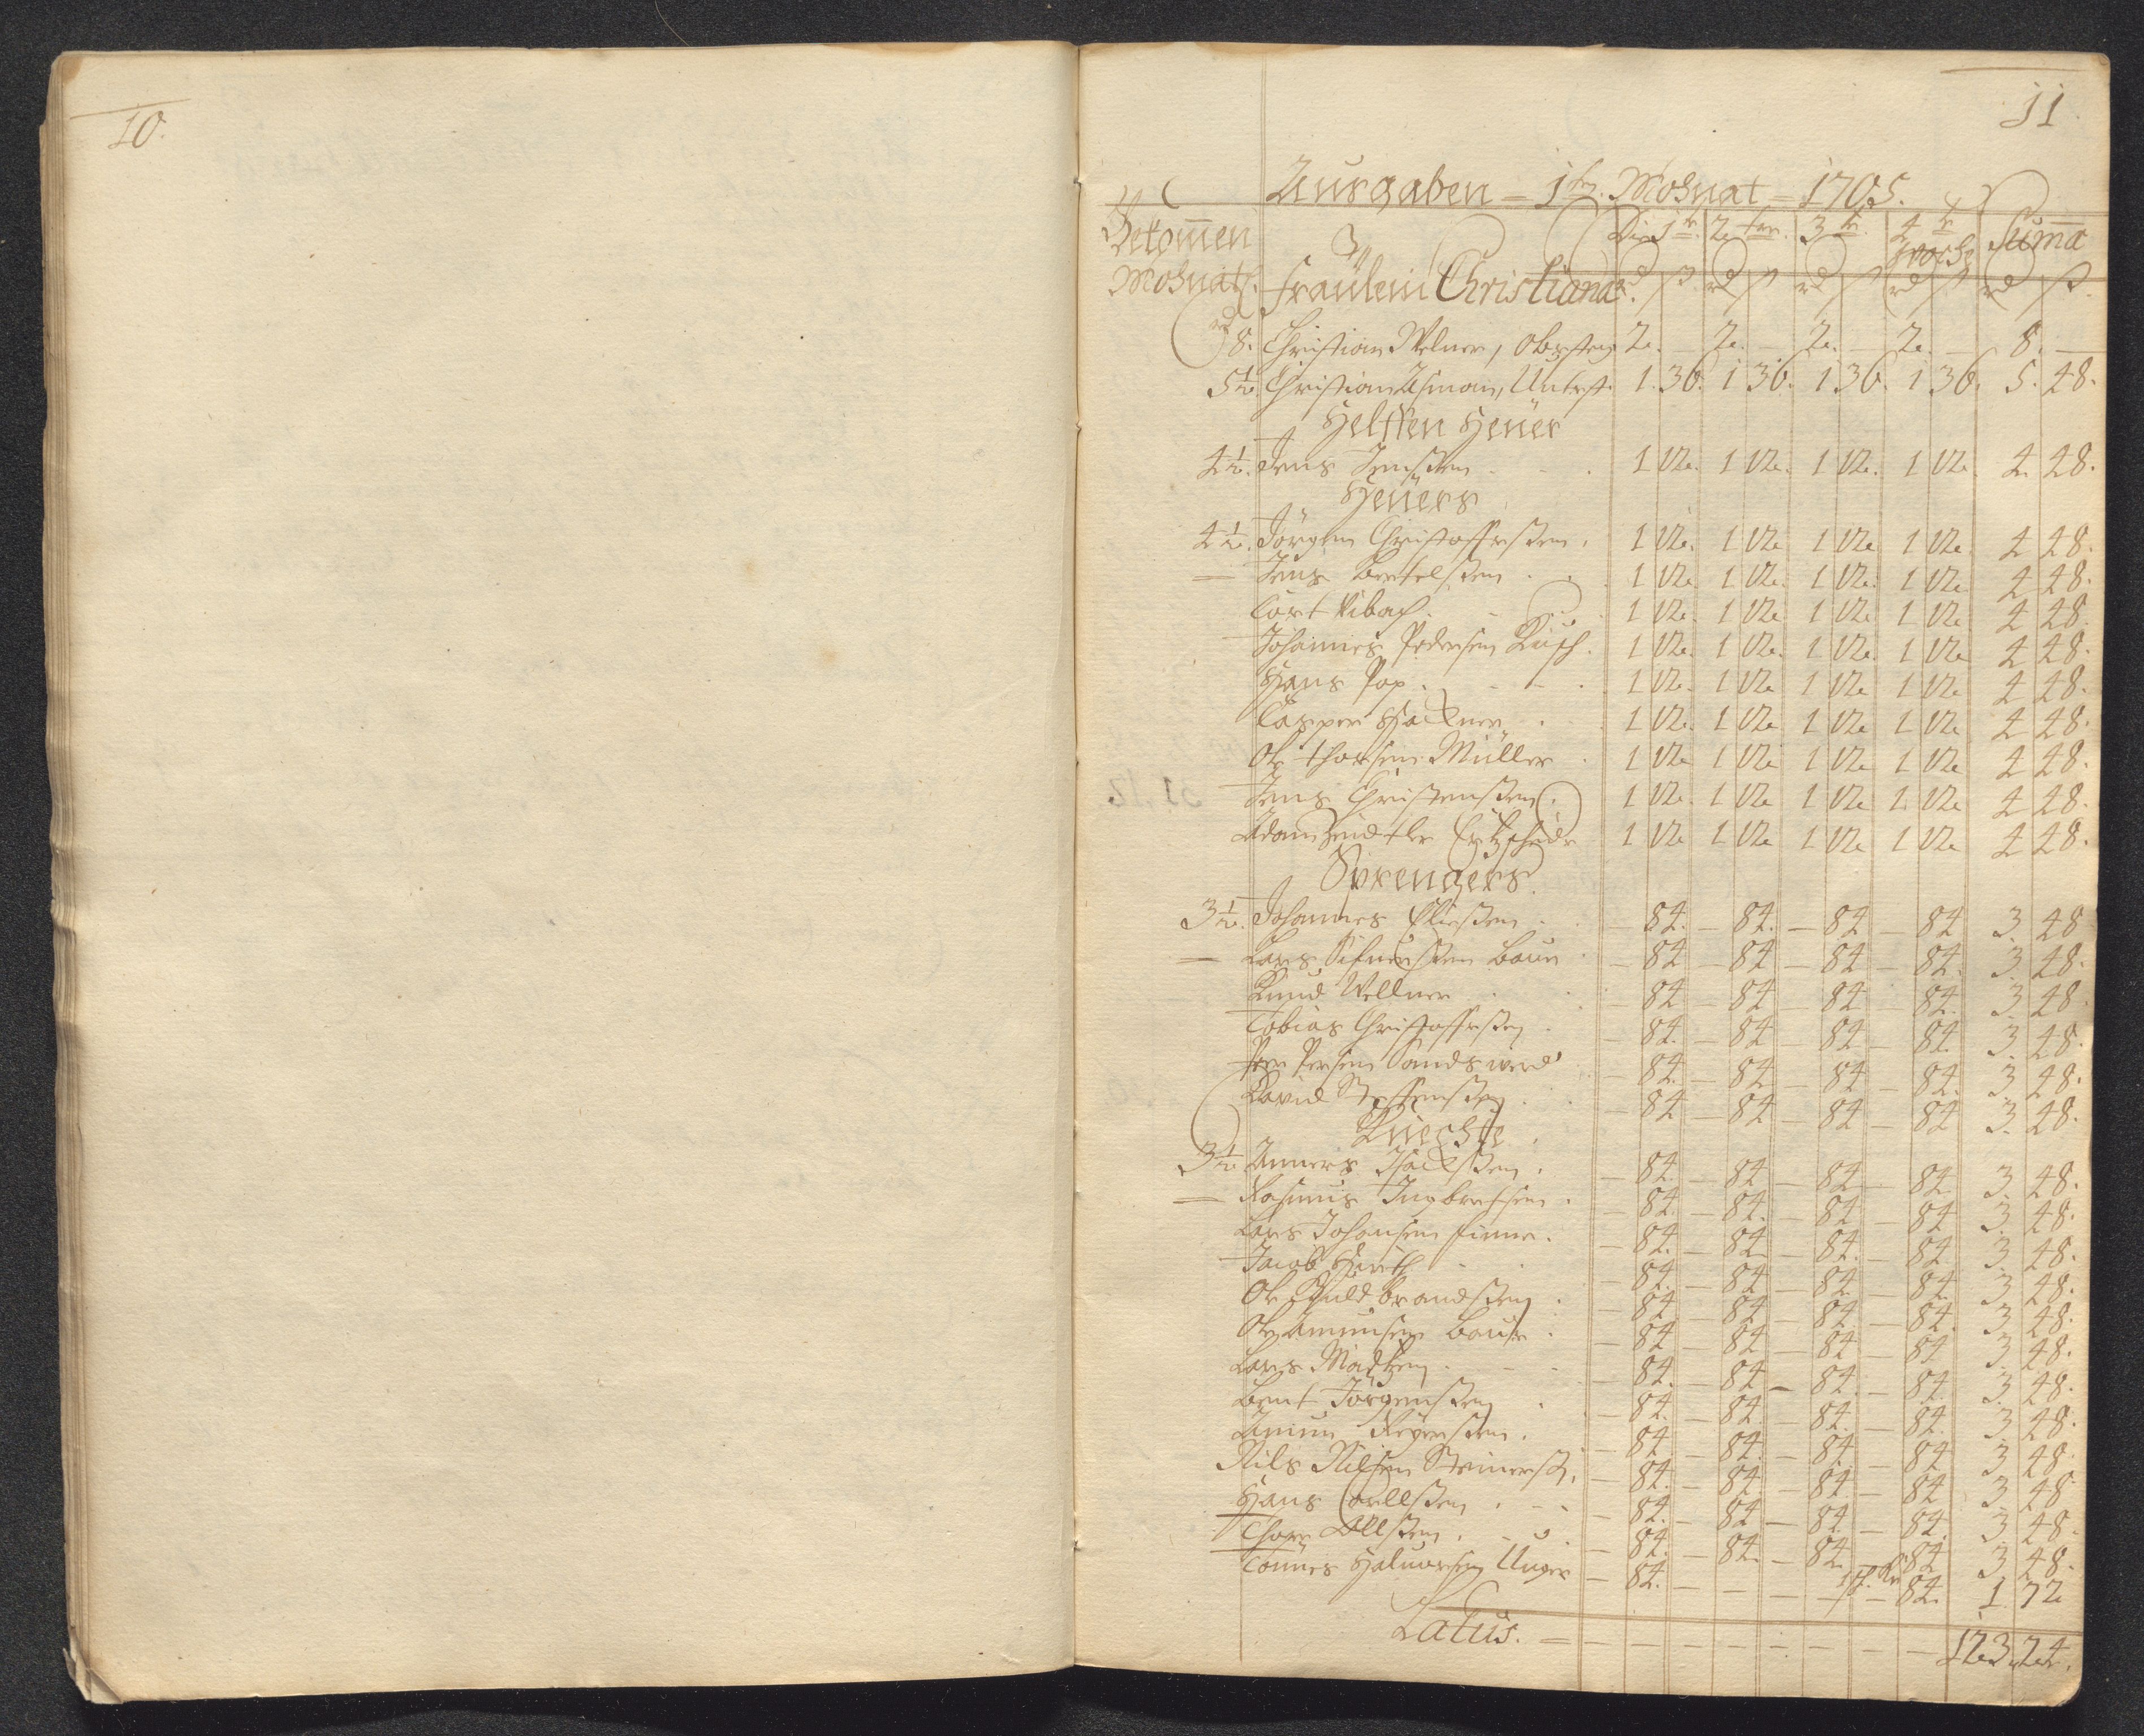 10.
11
Ausgaben = 1ten. Mohnat = 1705.
Bekom̅en Die 1te. 2te. 3te. 4te Woche Sum̅a
Mohnatl. In Fräulein Christiana. rd ß rd ß rd ß rd ß rd ß
rd 8. Christian Welner, Obersteig 2. – 2. – 2. – 2. – 8. –
5½. Christian Asman, Unterst. 1. 36. 1 36. 1 36. 1 36. 5. 48.
Helffen Heuer
4½. Jens Jenssen 1 12. 1 12. 1 12. 1 12. 4. 48.
Heüers
4½. Jörgen Christoffersen. 1 12. 1 12 1 12 1 12 4 48.
= Jens Bertelssen 1 12. 1 12. 1 12. 1 12 4 48.
Cort Vibach. 1 12. 1 12 1 12 1 12 4 48.
Johannes Pedersen Kusch. 1 12. 1 12. 1 12. 1 12 4 48.
Hans Pop. 1 12. 1 12 1 12 1 12. 4 48.
Casper Hackner 1 12. 1 12. 1 12 1 12 4 48.
Ole Thorsen Müller 1 12 1 12 1 12 1 12 4 48.
Jens Christenssen. 1 12. 1 12 1 12 1. 12 4 48.
Adam Ertzscheider 1 12 1 12 1 12 1 12 4 48.
Sprengers.
3½. Johannes Eliessen – 84. – 84. – 84 – 84 3. 48
= Lars Bauer – 84 – 84 – 84 – 84. 3. 48.
Knud Wellner – 84 – 84 – 84 – 84. 3. 48.
Tobias Christoffersen – 84. – 84 – 84 – 84. 3. 48.
Per Persen Sandswerd – 84. – 84 – 84 – 84. 3. 48.
David Steffenssen. – 84 – 84 – 84 – 84 3. 48.
Knechte.
3½ Anners Isackssen. – 84. – 84 – 84 – 84 3. 48.
= Rasmus Ingbretsen. – 84. – 84. – 84 – 84 3. 48.
Lars Johansen Finne. – 84. – 84 – 84. – 84 3. 48.
Jacob – 84. – 84 – 84 – 84. 3 48.
Ole Guldbrandssen – 84 – 84 – 84 – 84. 3. 48.
Ole Amunsen Bauer – 84 – 84 – 84 – 84 3. 48.
Lars Madtzen. – 84. – 84 – 84. – 84. 3. 48.
Bent Jörgenssen – 84. – 84 – 84. – 84. 3. 48.
Amun Reyerssen. – 84. – 84. – 84. – 84 3. 48
Nils Nilsen – 84. – 84. – 84 – 84 3 48
Hans – 84. – 84 – 84 – 84. 3 48.
Thore Ollssen. – 84. – 84. – 84. – 84 3 48.
Tönnes Haluorsen Unger – 84. – – – – – 84. 1 72
Latus. 123. 24.